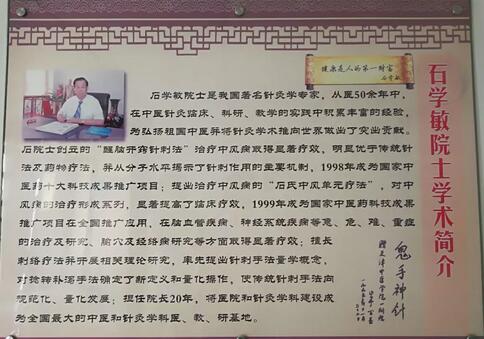 健康是人的第一财富
石学敏
石学敏院士学术简介
石学敏院士是我国著名针灸学专家，从医50余年中，
在中医针灸临床、科研、教学的实践中积累丰富的经验，
为弘扬祖国中医并将针灸学术推向世界做出了突出贡献。
石院士创立的“醒脑开窍针刺法”治疗中风病取得显著疗效，明显优于传统针
法及药物疗法，并从分子水平揭示了针刺作用的主要机制，1998年成为国家中
医药十大科技成果推广项目；提出治疗中风病的“石氏中风单元疗法”，对中
风病的治疗形成系列，显著提高了临床疗效，1999年成为国家中医药科技成果
推广项目在全国推广应用，在脑血管疾病、神经系统疾病等急、危、难、重症
的治疗及研究、腧穴及经络病研究等方面取得显著疗效；擅长
刺络疗法并开展相关理论研究，率先提出针刺手法量学概念，
对捻转补泻手法确定了新定义和量化操作，使传统针刺手法向
规范化、量化发展；担任院长20年，将医院和针灸学科建设成
为全国最大的中医和针灸学科医、教、研基地。
鬼手神针